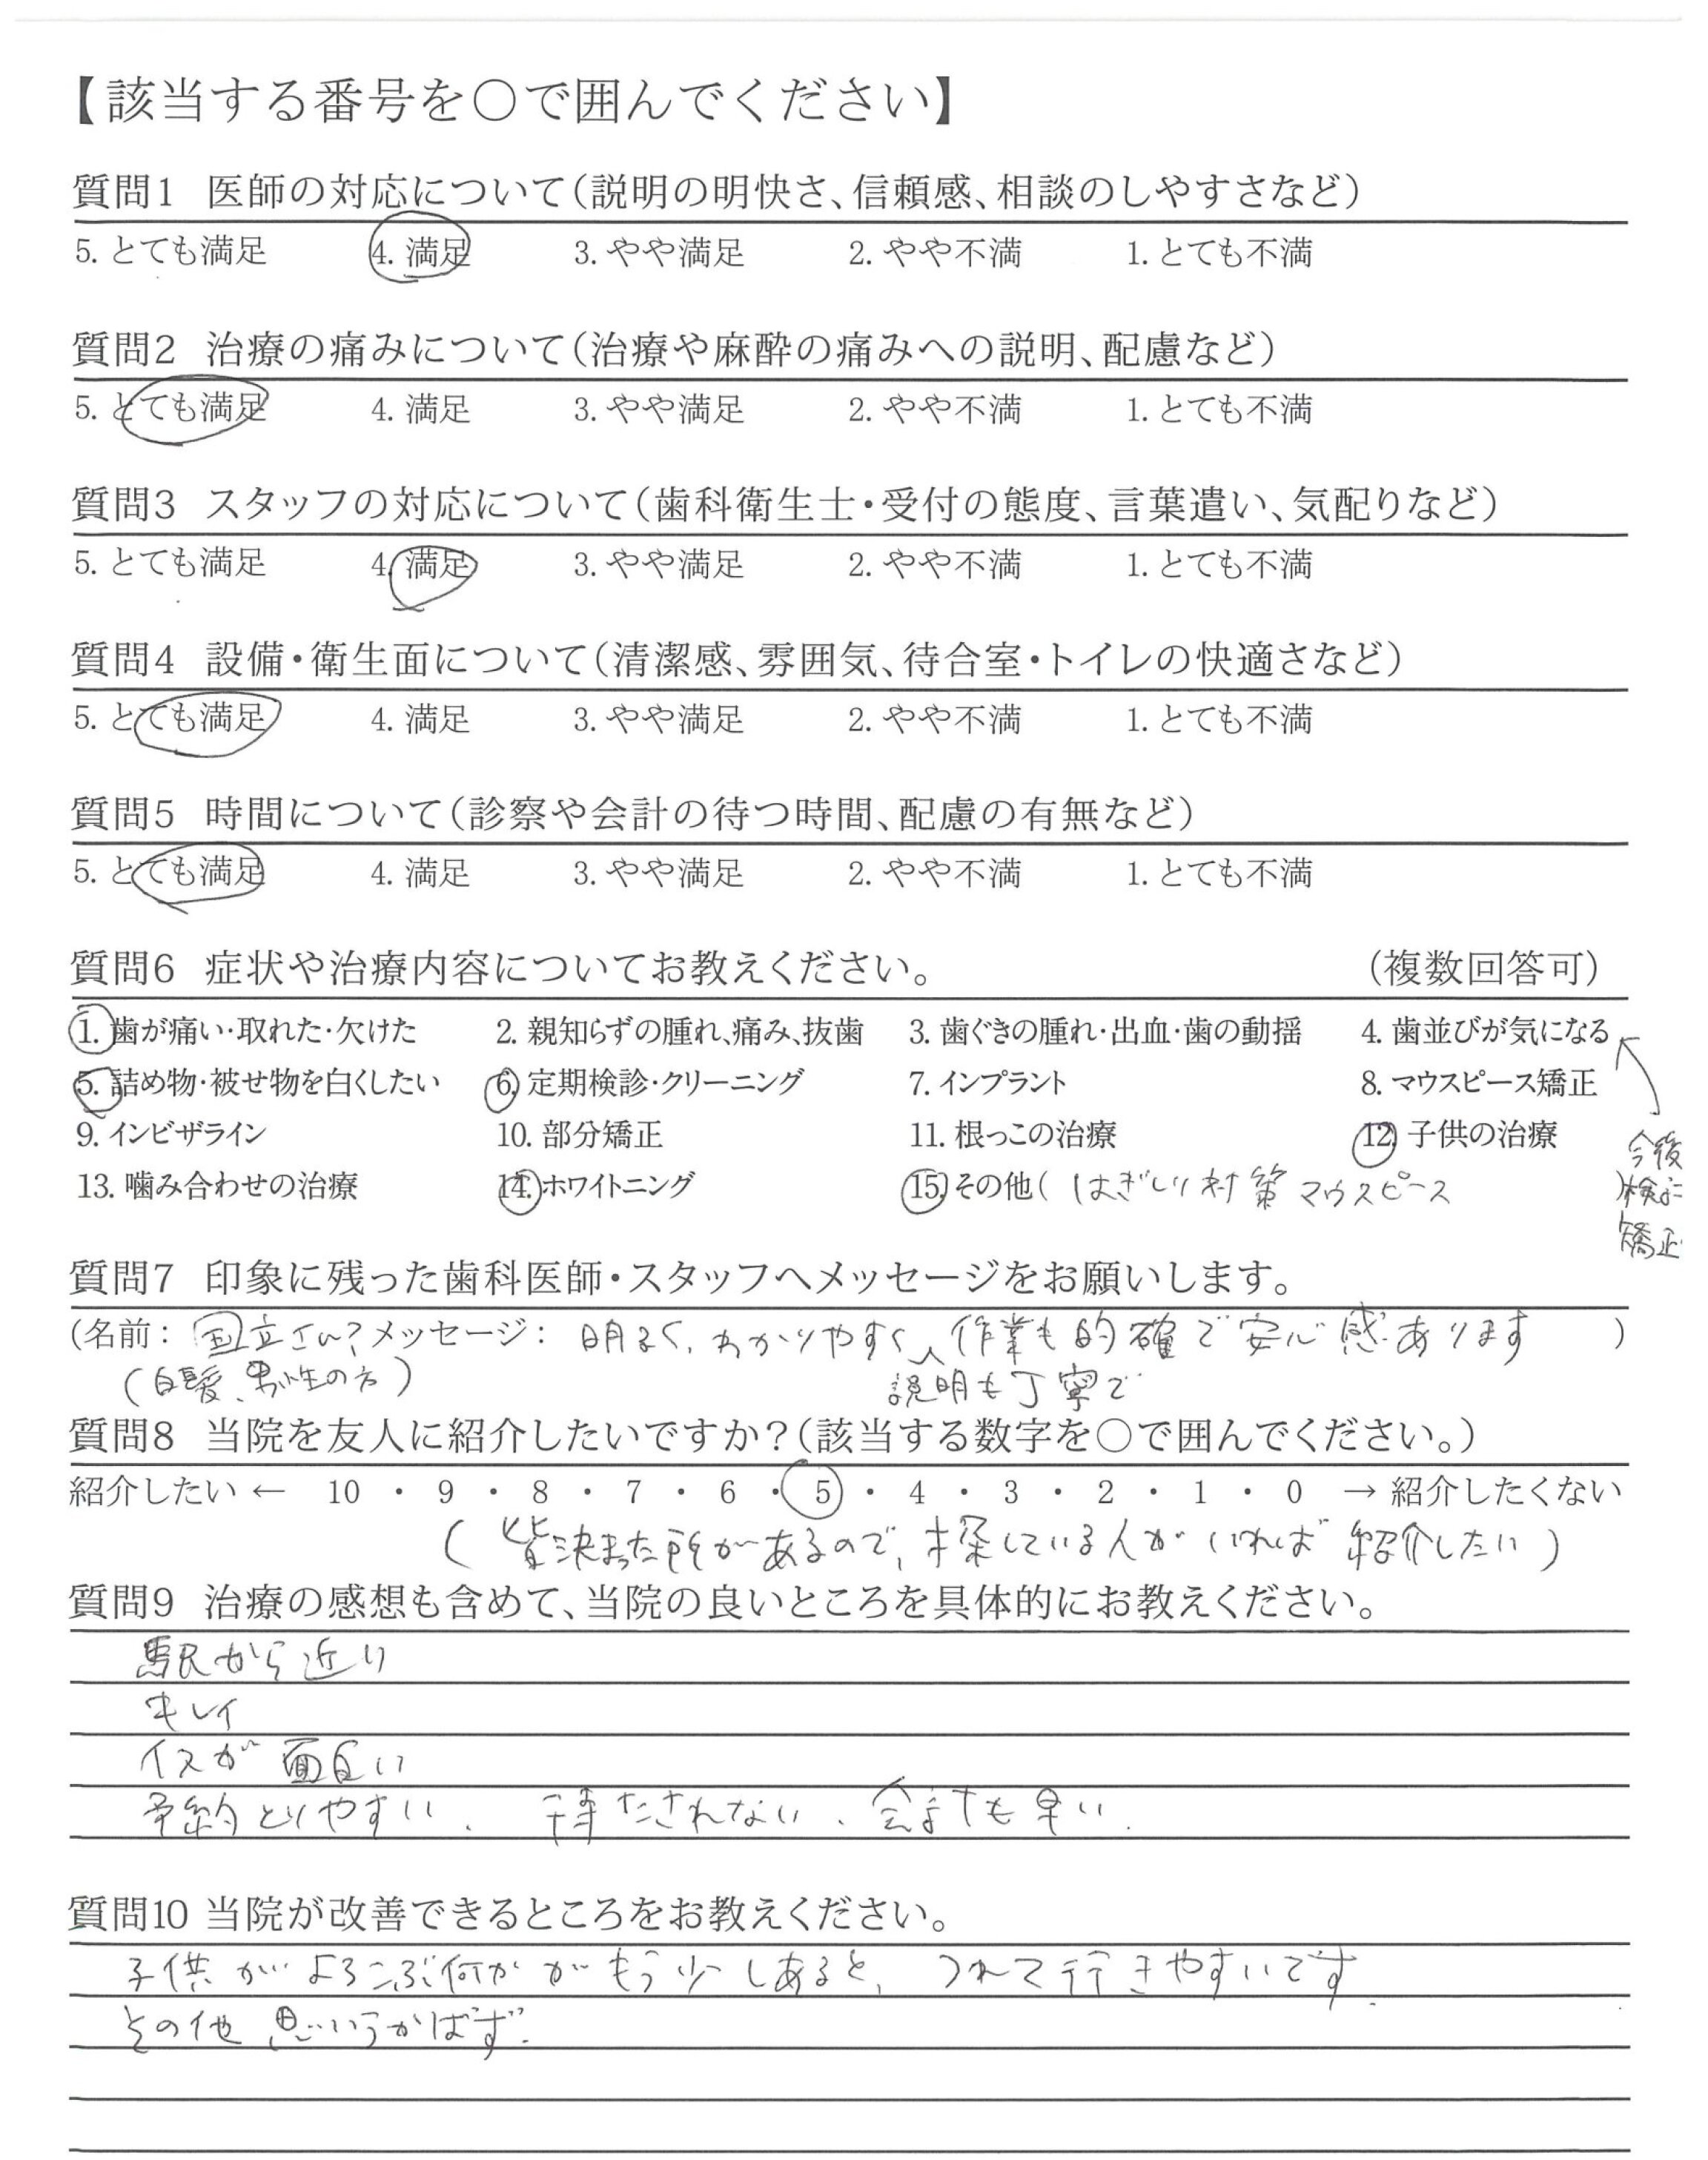 【該当する番号を〇で囲んでください】
質問1 医師の対応について(説明の明快さ、信頼感、相談のしやすさなど)
5. とても満足 4. 満足 3. やや満足 2. やや不満 1. とても不満
質問2 治療の痛みについて(治療や麻酔の痛みへの説明、配慮など)
5. とても満足 4. 満足 3. やや満足 2. やや不満 1. とても不満
質問3 スタッフの対応について(歯科衛生士・受付の態度、言葉遣い、気配りなど)
5. とても満足 4. 満足 3. やや満足 2. やや不満 1. とても不満
質問4 設備・衛生面について(清潔感、雰囲気、待合室・トイレの快適さなど)
5. とても満足 4. 満足 3. やや満足 2. やや不満 1. とても不満
質問5 時間について(診察や会計の待つ時間、配慮の有無など)
5. とても満足 4. 満足 3. やや満足 2. やや不満 1. とても不満
質問6 症状や治療内容についてお教えください。 (複数回答可)
1. 歯が痛い・取れた・欠けた 2. 親知らずの腫れ、痛み、抜歯 3. 歯ぐきの腫れ・出血・歯の動揺 4. 歯並びが気になる
5. 詰め物・被せ物を白くしたい 6. 定期検診・クリーニング 7. インプラント 8. マウスピース矯正
9. インビザライン 10. 部分矯正 11. 根っこの治療 12. 子供の治療
13. 噛み合わせの治療 14. ホワイトニング 15. その他( はぎしり対策 マウスピース )
今後
検討
矯正
質問7 印象に残った歯科医師・スタッフへメッセージをお願いします。
(名前: 国立さん? メッセージ: 明るく、わかりやすく、作業も的確で安心感あります )
(白髪、男性の方) 説明も丁寧で
質問8 当院を友人に紹介したいですか?(該当する数字を〇で囲んでください。)
紹介したい ← 10 ・ 9 ・ 8 ・ 7 ・ 6 ・ 5 ・ 4 ・ 3 ・ 2 ・ 1 ・ 0 → 紹介したくない
( 皆決まった所があるので、探している人がいれば 紹介したい )
質問9 治療の感想も含めて、当院の良いところを具体的にお教えください。
駅から近い
キレイ
イスが面白い
予約とりやすい、待たされない、会計も早い.
質問10 当院が改善できるところをお教えください。
子供がよろこぶ何かがもう少しあると、つれて行きやすいです.
その他 思いうかばず.